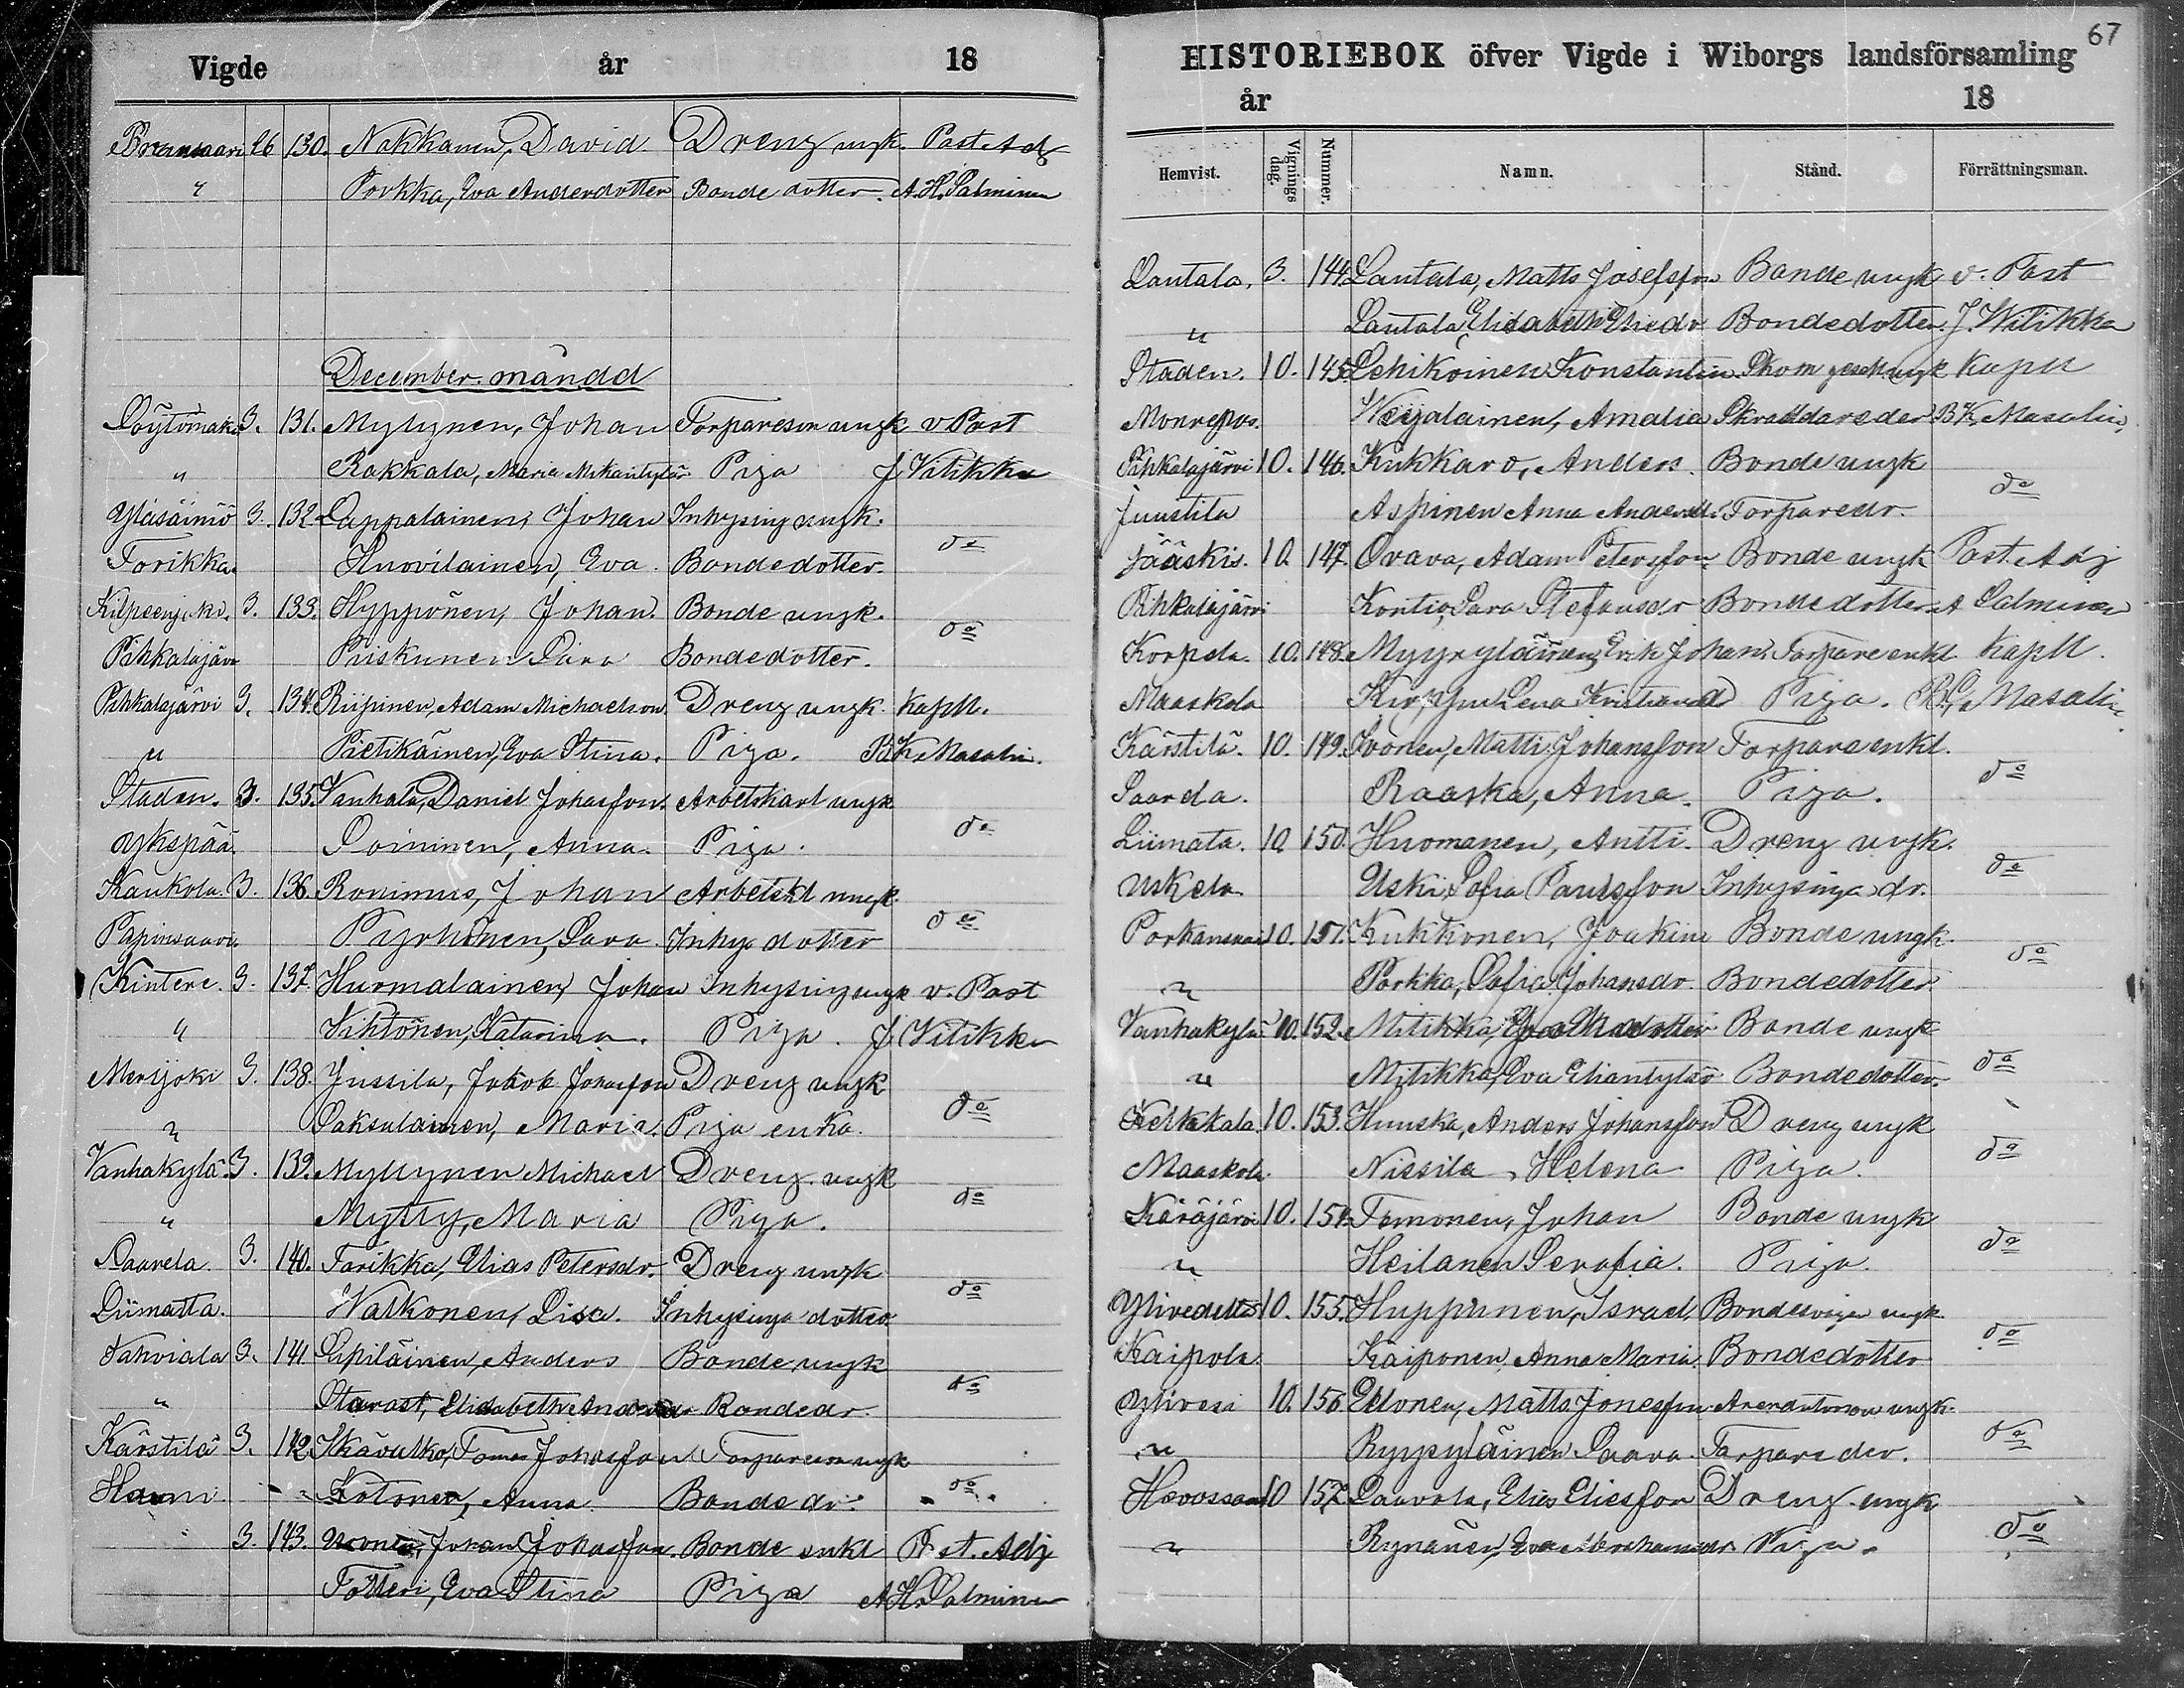 Vigde år 18
26 130. Nakkanen, David Dreng ungk. Past. Adj
" Porkka, Eva Andersdotter Bonde dotter. A. H. Salminen
December månad
3. 131. Myllynen, Johan Torpareson ungk v Past
" Rokkala, Maria Piga J Vilikka
Yläsäiniö 3. 132. Lappalainen, Johan Inhysing ungk.
Torikka. Huovilainen, Eva. Bondedotter. do
3. 133. Hyppönen, Johan. Bonde ungk.
Pihkalajärvi Priskunen Sara Bondedotter. do
Pihkalajärvi 3. 134. Riipinen, Adam Michaelson. Dreng ungk. Kapll.
" Pietikäinen, Eva Stina. Piga. B. K. Masalin.
Staden. 3. 135. Vanhala, Daniel Johansson. Arbetskarl ungk
Ykspää. Soininen, Anna. Piga. do
Kaukola. 3. 136. Ronimus, Johan Arbetskl ungk.
Papinsaari. Pyrhönen, Sara. Inhys dotter do
Kintere. 3. 137. Hurmalainen, Johan Inhysing ungk v. Past
" Vihtonen, Katarina. Piga. J. Vilikka
Merijoki 3. 138. Jussila, Jakob Johansson Dreng ungk
" Saksalainen, Maria. Piga enka. do
Vanhakylä. 3. 139. Myllynen Michael Dreng ungk
" Mytty, Maria Piga. do
Saarela 3. 140. Tarikka, Elias Petersdr. Dreng ungk
Liimatta. Walkonen, Lisa. Inhysinga dotter. do
Tahviala 3. 141. Lipiläinen, Anders Bonde ungk
" Stavast, Elisabeth Bondedr. do
Kärstilä 3. 142. Tomas Johansson Torpareson ungk
Hanni Kotonen, Anna. Bonde dr. do
3. 143. Johan Johansson. Bonde enkl Past. Adj
Tötteri, Eva Stina Piga A. H. Salminen
67
HISTORIEBOK öfver Vigde i Wiborgs landsförsamling
år 18
Hemvist. Vignings dag. Nummer. Namn. Stånd. Förrättningsman.
Lantala. 3. 144. Lantala, Matts Josefsson Bonde ungk v. Past
" Lantala Elisabeth Eliedr Bondedotter. J. Wilikka
Staden. 10. 145. Lehikoinen Konstantin Skom gesell ungk Kapll
Monrepos. Weijalainen, Amalia Skraddaredr B. K. Masalin.
Pihkalajärvi 10. 146. Kukkaro, Anders. Bonde ungk
Juustila Aspinen Anna Andersd. Torparedr. do
Jääskis. 10. 147. Orava, Adam Petersson Bonde ungk Past. Adj
Pihkalajärvi Kontio, Sara Stefansdr Bondedotter A Salminen
Korpela. 10. 148. Myyryläinen, Erik Johan. Torpare enkl. Kapll.
Maaskola Lena Piga. B. K. Masalin
Kärstilä. 10. 149. Ivonen, Matti Johansson Torpare enkl.
Saarela. Raaska, Anna. Piga. do
Liimata. 10 150. Huomanen, Antti. Dreng ungk.
Uskela Uski, Sofia Paulsson Inhysinga dr. do
10. 151. Kukkonen, Joakim Bonde ungk.
" Porkka, Sofia Johansdr Bondedotter do
Vanhakylä 10. 152. Mitikka, Bonde ungk
" Mitikka, Eva Eliantytär Bondedotter. do
Kelkkala. 10. 153. Huuska, Anders Johansson Dreng ungk
Maaskola. Nissila, Helena Piga. do
Käräjärvi 10. 154. Tomonen, Johan Bonde ungk
" Heilanen Serafia. Piga. do
10. 155. Huppunen, Israel, ungk.
Kaipola Kaiponen, Anna Maria. Bondedotter do
Ylivesi 10. 156. Ellonen, Matts Jonesson ungk.
" Ryypyläinen Saara. Torpare dr. do
10 157. Laavola, Elias Eliesson Dreng ungk
" Rynänen, Eva Abrahamsdr. Piga. do